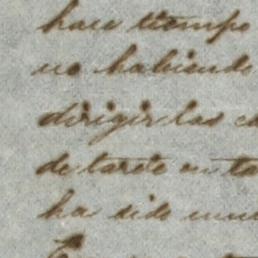 hace tiempo
no habiendo
dirigirlas
de tarde en ta
ha sido